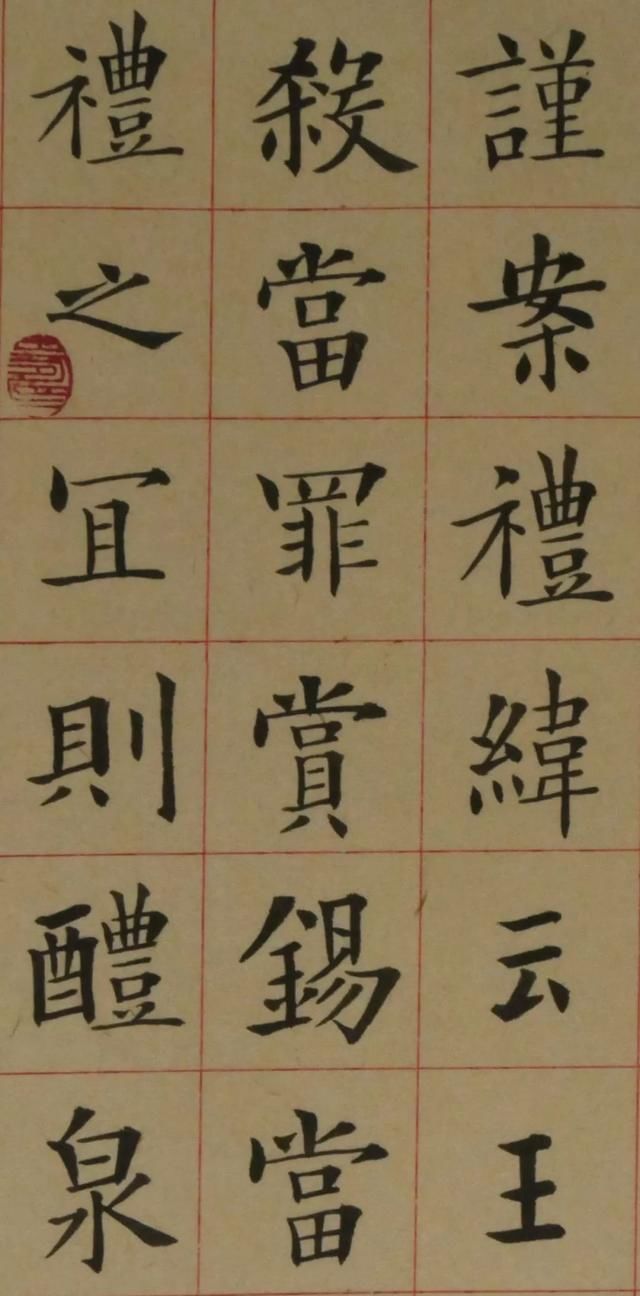 謹案禮緯云王
殺當罪賞錫當
禮之宜則醴泉